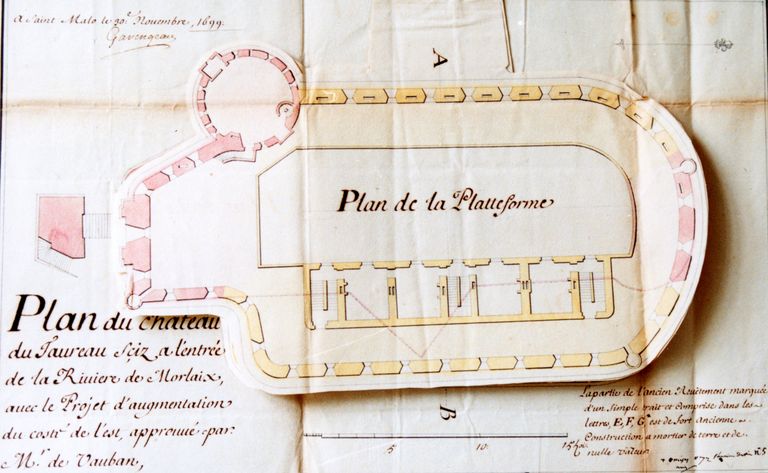 A Saint Malo le 30.e Novembre, 1699.
Garengeau
A
Plan de la Platteforme
Plan du chateau
du Taureau sçiz a l'entrée
de la Riviere de Morlaix,
avec le Projet d'augmentation
du costé de l'est, approuvé par
M.r de Vauban,
B
5
10
15
La partie de l'ancien Revêtement marquée
d'un simple trait et comprise dans les
lettres, E, F, G, est de fort ancienne
Construction a mortier de terre et de
nulle valeur